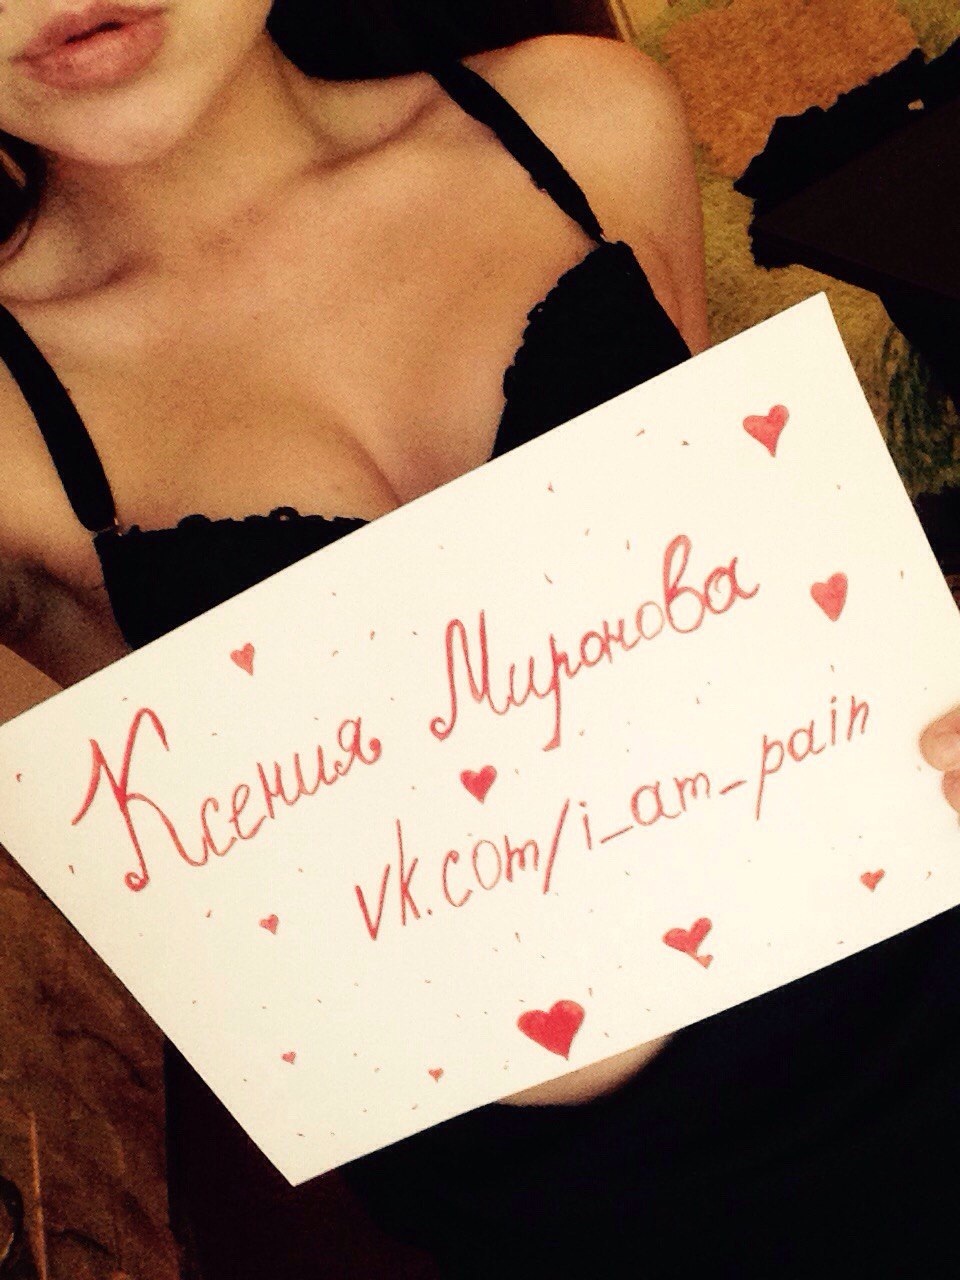 Ксения Миронова
vk.com/i_am_pain